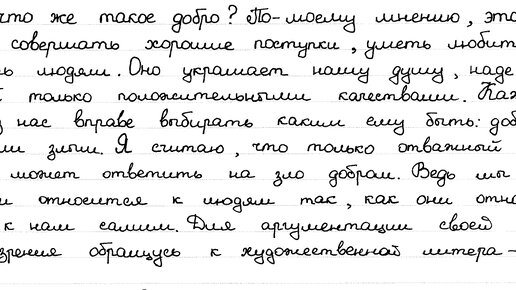 что же такое добро? По-моему мнению, это
совершать хорошие поступки, уметь любит
ь людям. Оно украшает нашу душу, наде
т только положительными качествами. Каж
з нас вправе выбирать каким ему быть: доб
ли злым. Я считаю, что только отважный
может ответить на зло добром. Ведь мы
и относится к людям так, как они отно
к нам самим. Для аргументации своей
зрения обращусь к художественной литера-